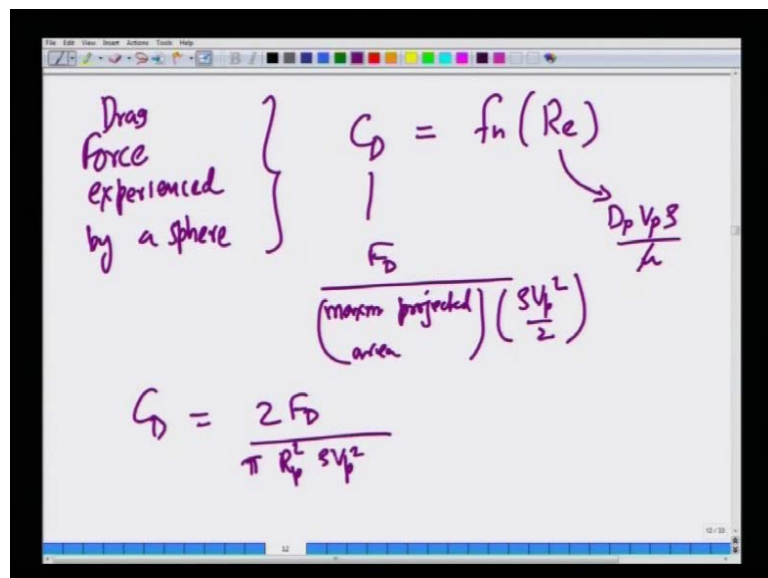 File Edit View Insert Actions Tools Help
B I
Drag
Force
experienced
by a sphere
C_D = fn (Re)
D_p V_p ρ / μ
F_D / (maxm projected area) (ρV_p² / 2)
C_D = 2 F_D / π R_p² ρV_p²
12
12 / 33